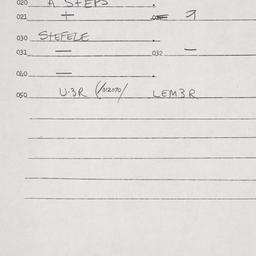 020 A STEPS .
021 +
030 STEFELE .
031 — 032 —
040 — .
050 U.3R LEM3R